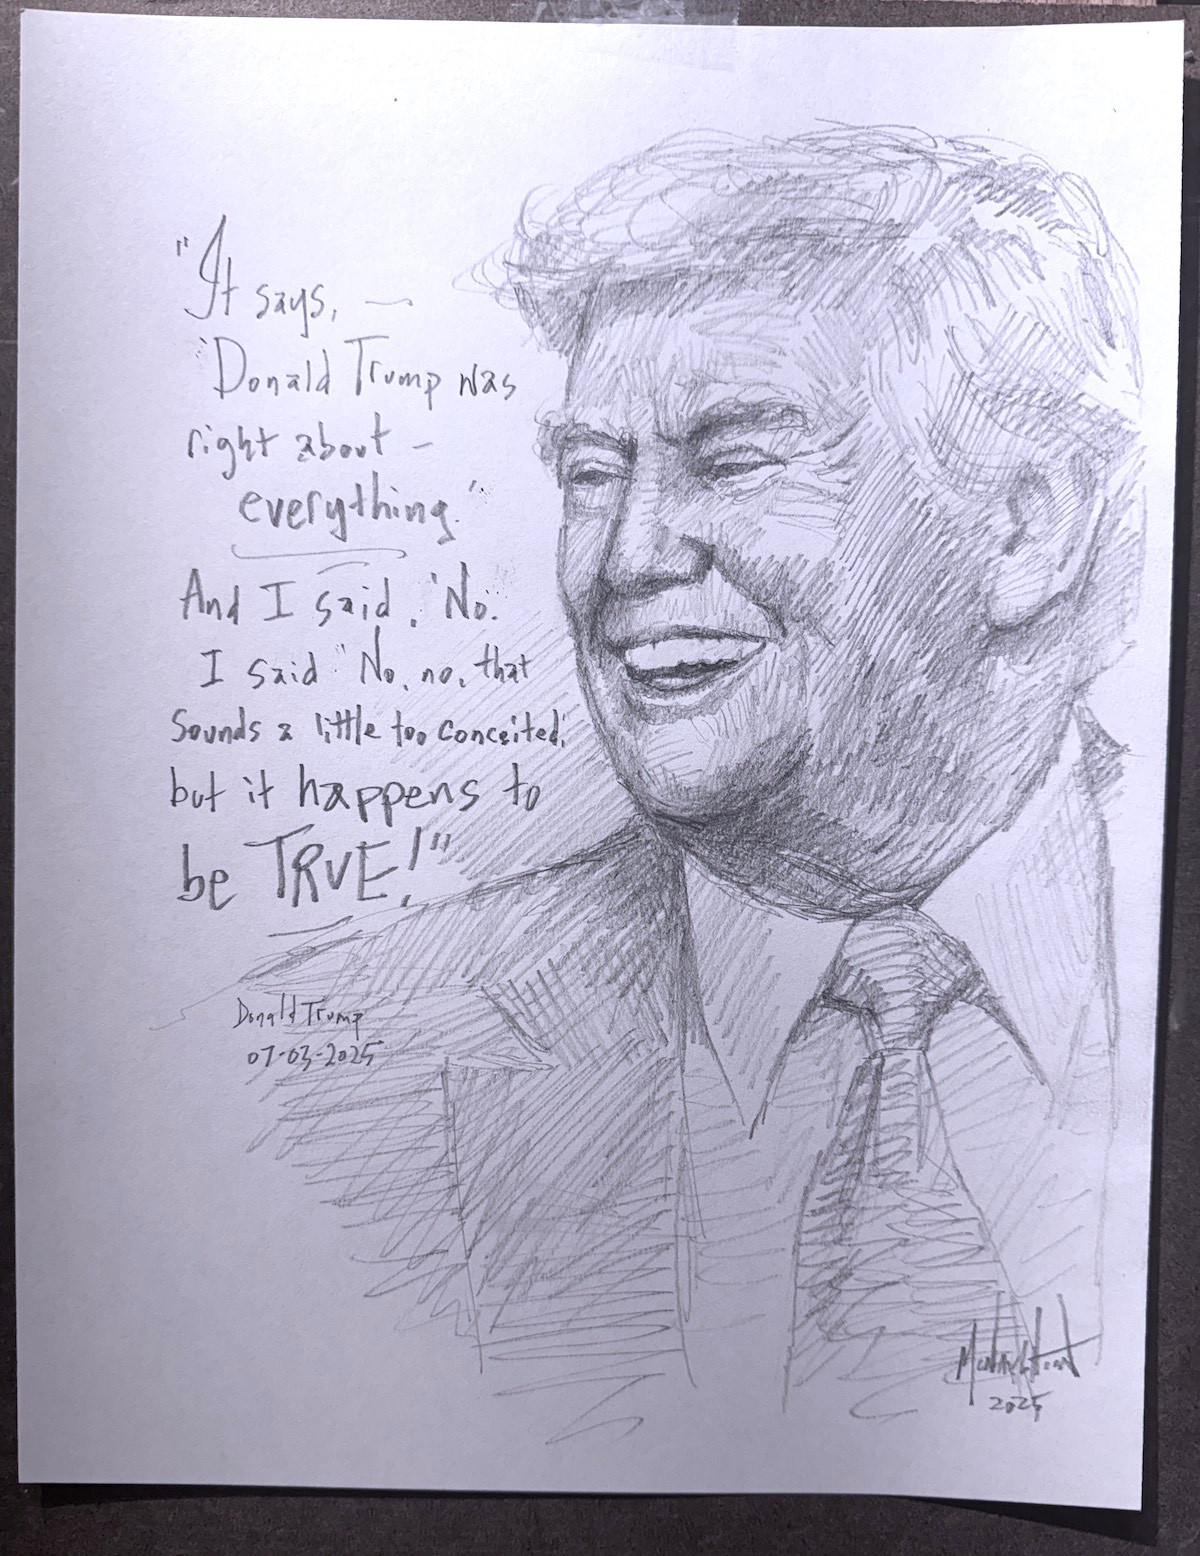 "It says, —
'Donald Trump was
right about –
everything.'
And I said, 'No.
I said 'No, no, that
sounds a little too conceited,
but it happens to
be TRUE!"
Donald Trump
07-03-2025
2025